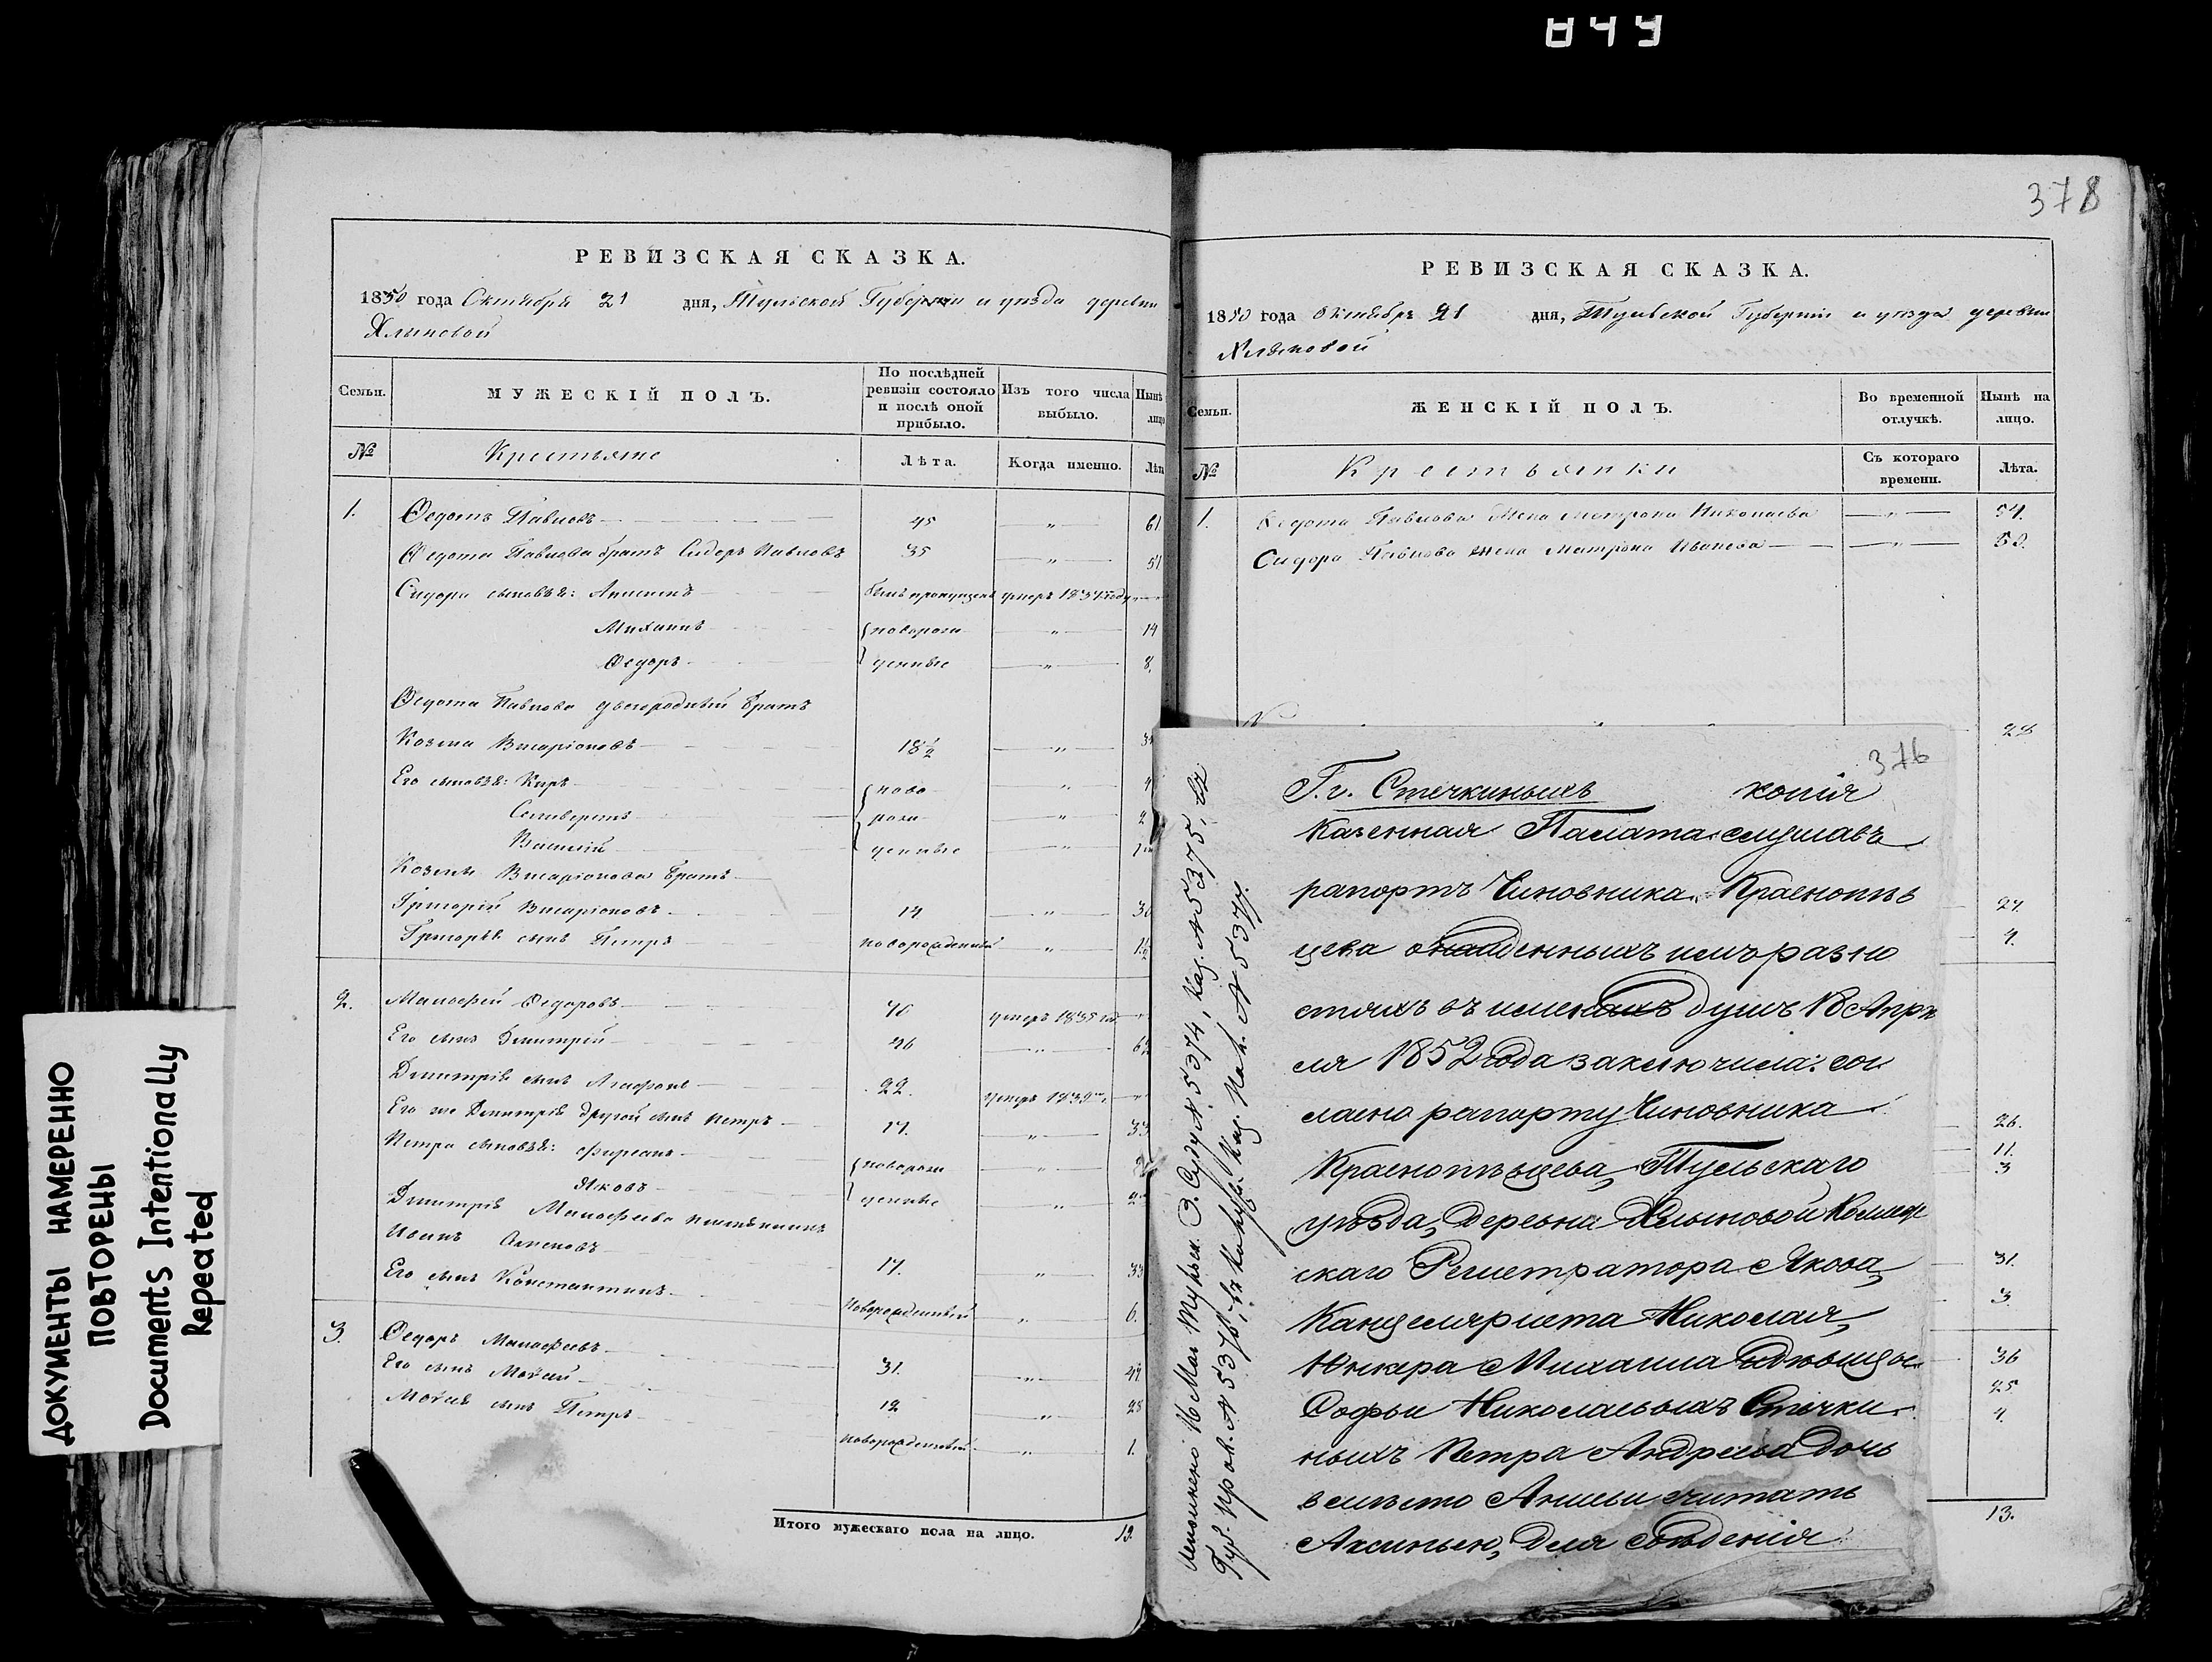 849
ДОКУМЕНТЫ НАМЕРЕННО
ПОВТОРЕНЫ
Documents Intentionally
Repeated
РЕВИЗСКАЯ СКАЗКА.
1850 года Октября 21 дня, Тульской Губернии и уѣзда деревни
Хлыновой
Семьи. МУЖЕСКІЙ ПОЛЪ. По послѣдней ревизіи состояло и послѣ оной прибыло. Изъ того числа выбыло. Нынѣ лицо
№ Крестьяне Лѣта. Когда именно. Лѣт
1. Ѳедотъ Павловъ 45 „ 61.
Ѳедота Павлова братъ Сидоръ Павловъ 35 „ 51.
Сидора сыновья: былъ пропущенъ умеръ 1834 году
Михаилъ новорож „ 14
Ѳедоръ денные „ 8.
Ѳедота Павлова двоюродный братъ
Козма Висаріоновъ 18½ „
Его сыновья: Киръ ново „ 4
Селиверстъ рож „ 2
Василій денные „
Козмы Висаріонова братъ
Григорій Висаріоновъ 14 „ 30
Григорья сынъ Петръ новорожденный „ 1½
2. Малофей Ѳедоровъ 70 умеръ 1835
Его сынъ Дмитрій 46 „ 62
Дмитрія сынъ Агафонъ 22. умеръ 1839
Его же Дмитрія другой сынъ Петръ 17. „ 33
Петра сыновья: Фирсанъ новорож „
Яковъ денные „
Дмитрія Малофеева племянникъ
17. „ 33
Его сынъ Константинъ новорожденный „ 6.
3. Ѳедоръ Малофеевъ 31. „ 47
Его сынъ Моисей 12 „ 28
Моисея сынъ Петръ новорожденный „ 1.
Итого мужескаго пола на лицо. 19.
378
РЕВИЗСКАЯ СКАЗКА.
1850 года Октября 21 дня, Тульской Губерніи и уѣзда деревни
Хлыновой
Семьи. ЖЕНСКІЙ ПОЛЪ. Во временной отлучкѣ. Нынѣ на лицо.
№ Крестьянки Съ котораго времени. Лѣта.
1. Ѳедота Павлова жена Матрона Николаева „ 54.
Сидора Павлова жена Матрона Иванова „ 50.
28
27.
4.
26.
11.
3
31.
3.
36
25.
4.
13.
376
Г.г. Стечкиныхъ копія
Казенная Палата слушавъ
рапортъ Чиновника Краснопѣв
цева о найденныхъ имъ разно
стяхъ въ именахъ душъ 18 Апрѣ
ля 1852 года заключила: сог
ласно рапорту Чиновника
Краснопѣвцева, Тульскаго
уѣзда, деревни Хлыновой Коллеж
скаго Регистратора Якова,
Канцеляриста Николая,
Юнкера Михаила и дѣвицы
Софьи Николаевыхъ Стечки
ныхъ Петра Андреева дочь
вмѣсто Анисьи считать
Аксиньею, для свѣденія